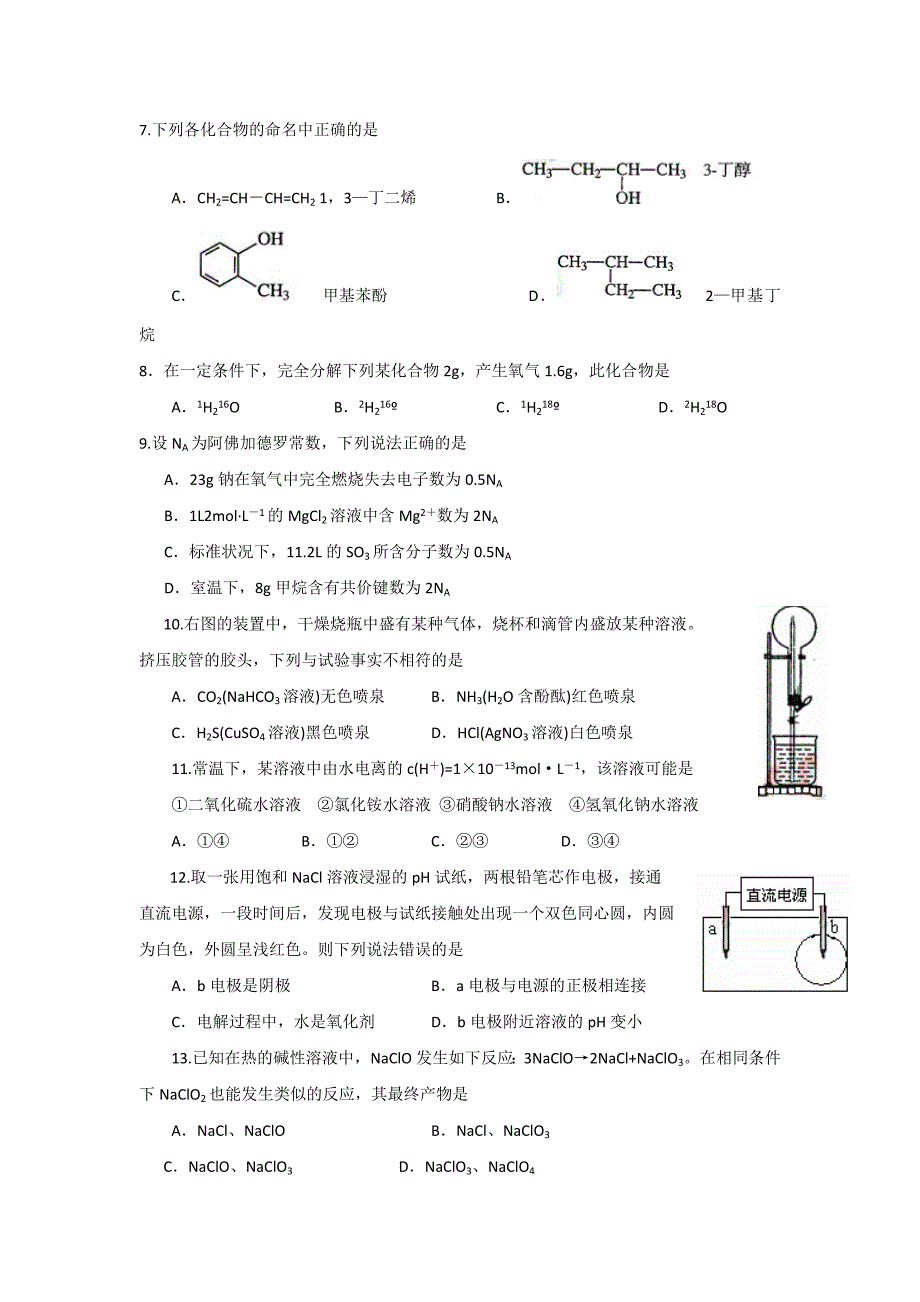 7.下列各化合物的命名中正确的是
A．CH₂=CH－CH=CH₂ 1，3—丁二烯 B．CH₃—CH₂—CH—CH₃ 3-丁醇
OH
C．OH CH₃ 甲基苯酚 D．CH₃—CH—CH₃ 2—甲基丁
CH₂—CH₃
烷
8．在一定条件下，完全分解下列某化合物 2g，产生氧气 1.6g，此化合物是
A．¹H₂¹⁶O B．²H₂¹⁶º C．¹H₂¹⁸º D．²H₂¹⁸O
9.设 N_A 为阿佛加德罗常数，下列说法正确的是
A．23g 钠在氧气中完全燃烧失去电子数为 0.5N_A
B．1L2mol·L⁻¹ 的 MgCl₂ 溶液中含 Mg²⁺数为 2N_A
C．标准状况下，11.2L 的 SO₃ 所含分子数为 0.5N_A
D．室温下，8g 甲烷含有共价键数为 2N_A
10.右图的装置中，干燥烧瓶中盛有某种气体，烧杯和滴管内盛放某种溶液。
挤压胶管的胶头，下列与试验事实不相符的是
A．CO₂(NaHCO₃ 溶液)无色喷泉 B．NH₃(H₂O 含酚酞)红色喷泉
C．H₂S(CuSO₄ 溶液)黑色喷泉 D．HCl(AgNO₃ 溶液)白色喷泉
11.常温下，某溶液中由水电离的 c(H⁺)=1×10⁻¹³mol·L⁻¹，该溶液可能是
①二氧化硫水溶液 ②氯化铵水溶液 ③硝酸钠水溶液 ④氢氧化钠水溶液
A．①④ B．①② C．②③ D．③④
12.取一张用饱和 NaCl 溶液浸湿的 pH 试纸，两根铅笔芯作电极，接通
直流电源，一段时间后，发现电极与试纸接触处出现一个双色同心圆，内圆
为白色，外圆呈浅红色。则下列说法错误的是
直流电源
a b
A．b 电极是阴极 B．a 电极与电源的正极相连接
C．电解过程中，水是氧化剂 D．b 电极附近溶液的 pH 变小
13.已知在热的碱性溶液中，NaClO 发生如下反应：3NaClO→2NaCl+NaClO₃。在相同条件
下 NaClO₂ 也能发生类似的反应，其最终产物是
A．NaCl、NaClO B．NaCl、NaClO₃
C．NaClO、NaClO₃ D．NaClO₃、NaClO₄